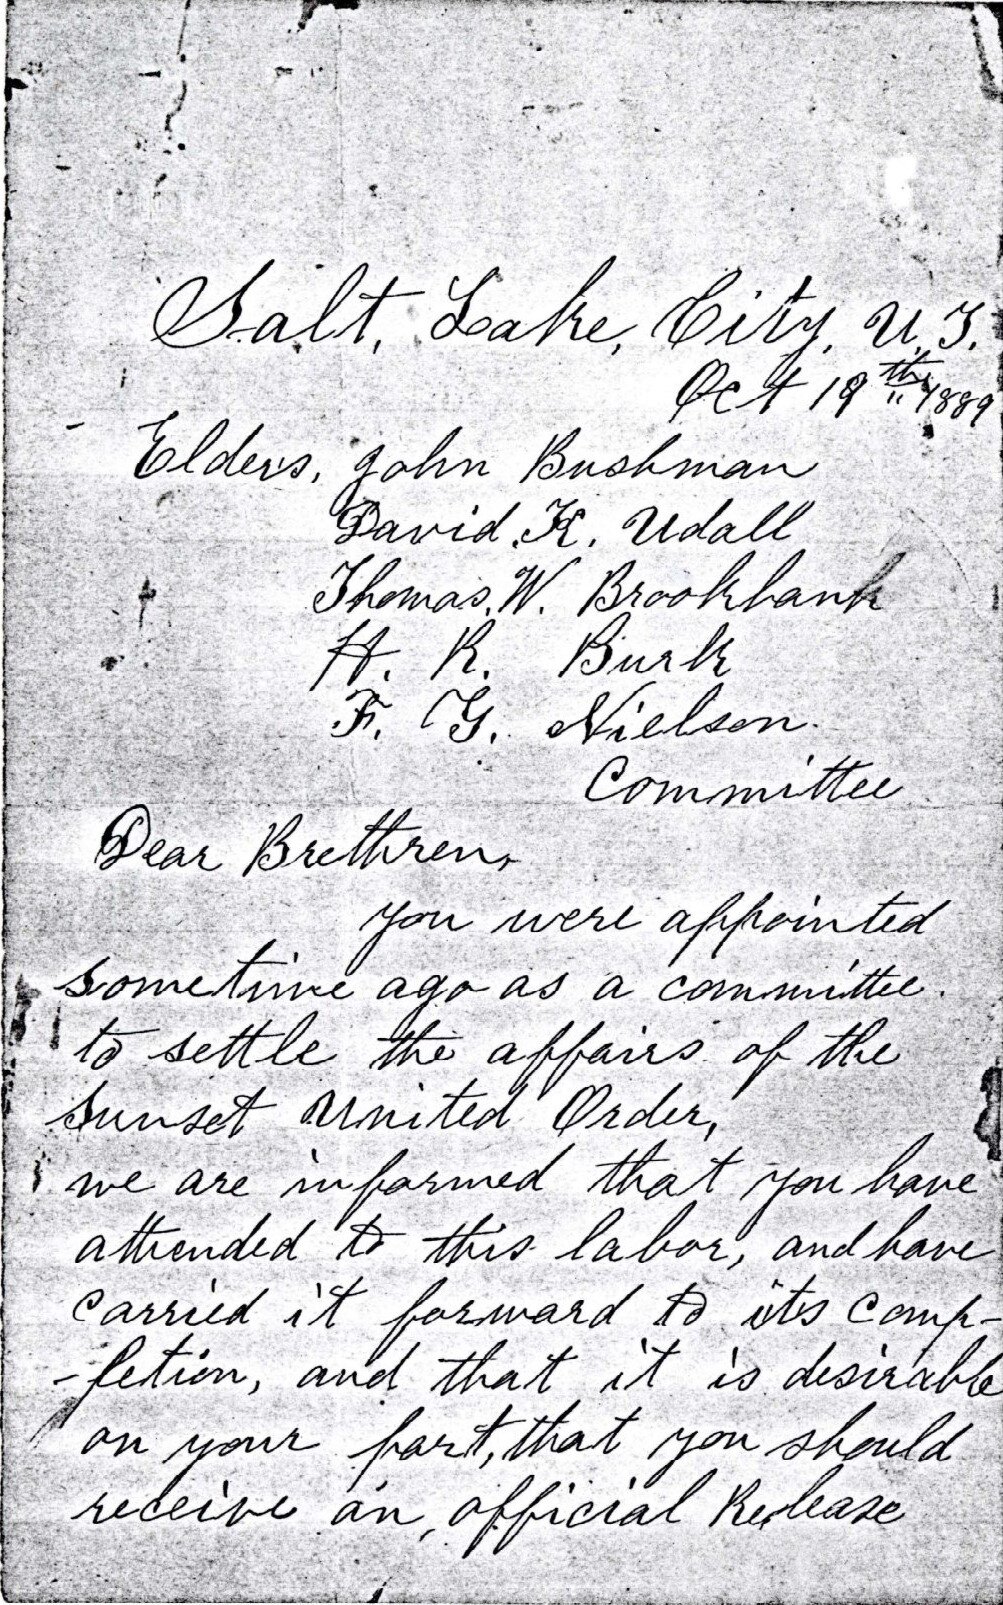 Salt, Lake, City, U.T.
Oct 19th 1889
Elders, John Bushman
David. K. Udall
Thomas. W. Brookbank
H. R. Burk
F. G. Nielson.
Committee
Dear Brethren,
you were appointed
sometime ago as a committee.
to settle the affairs of the
Sunset United Order,
we are informed that you have
attended to this labor, and have
carried it forward to its comp-
-letion, and that it is desirable
on your part, that you should
receive an, official Release